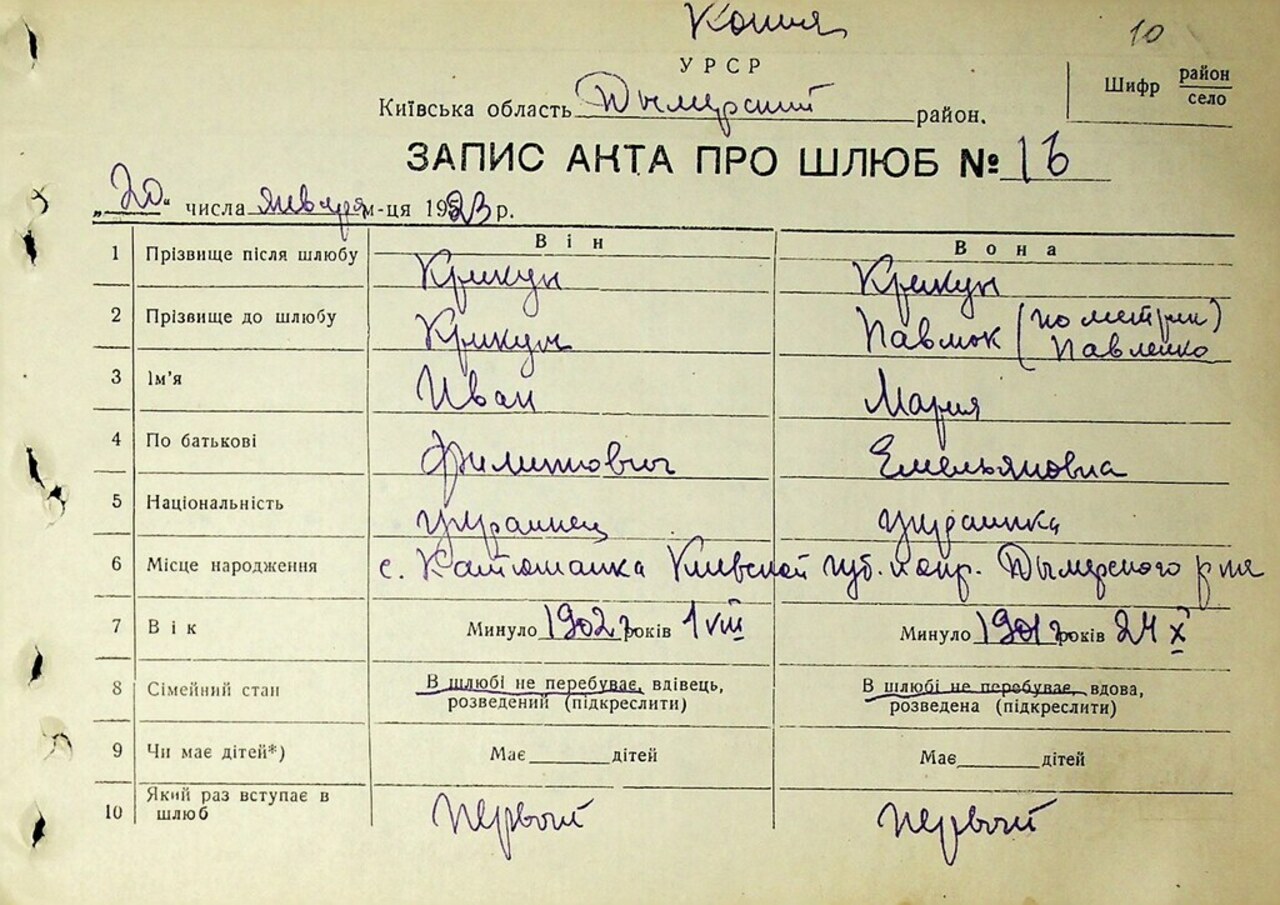 Копия
10
УРСР
Шифр район село
Київська область Дымерский район.
ЗАПИС АКТА ПРО ШЛЮБ № 16
„20“ числа января м-ця 1923 р.
Він Вона
1 Прізвище після шлюбу Крикун Крикун
2 Прізвище до шлюбу Крикун Павлюк (по метрик) Павленко
3 Ім'я Иван Мария
4 По батькові Филиппович Емельяновна
5 Національність украинец украинка
6 Місце народження с. Катюшанка Киевской губ. Дымерского р-на
7 Вік Минуло 1902 г років 1 VIII Минуло 1901 г років 24 X
8 Сімейний стан В шлюбі не перебуває, вдівець, В шлюбі не перебуває, вдова,
розведений (підкреслити) розведена (підкреслити)
9 Чи має дітей*) Має дітей Має дітей
10 Який раз вступає в шлюб первый первый